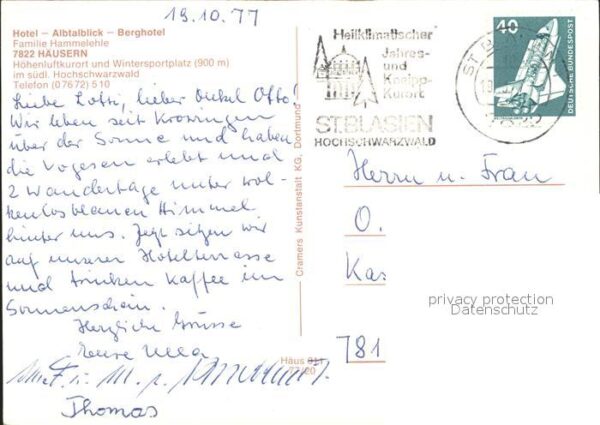 19.10.77
Hotel – Albtalblick – Berghotel
Familie Hammelehle
7822 HÄUSERN
Höhenluftkurort und Wintersportplatz (900 m)
im südl. Hochschwarzwald
Telefon (0 76 72) 5 10
Liebe Lotti, lieber Onkel Otto!
Wir leben seit Krozingen
über der Sonne und haben
die Vogesen erlebt und
2 Wandertage unter wol-
kenlosblauem Himmel
hinter uns. Jetzt sitzen wir
auf unserer Hotelterrasse
und trinken Kaffee im
Sonnenschein.
Herzliche Grüsse
Eure Ulla
Thomas
Cramers Kunstanstalt KG, Dortmund
Häus
Heilklimatischer
Jahres-
und
Kneipp-
Kurort
ST.BLASIEN
HOCHSCHWARZWALD
40
DEUTSCHE BUNDESPOST
Herrn u. Frau
O.
Kas
privacy protection
Datenschutz
781